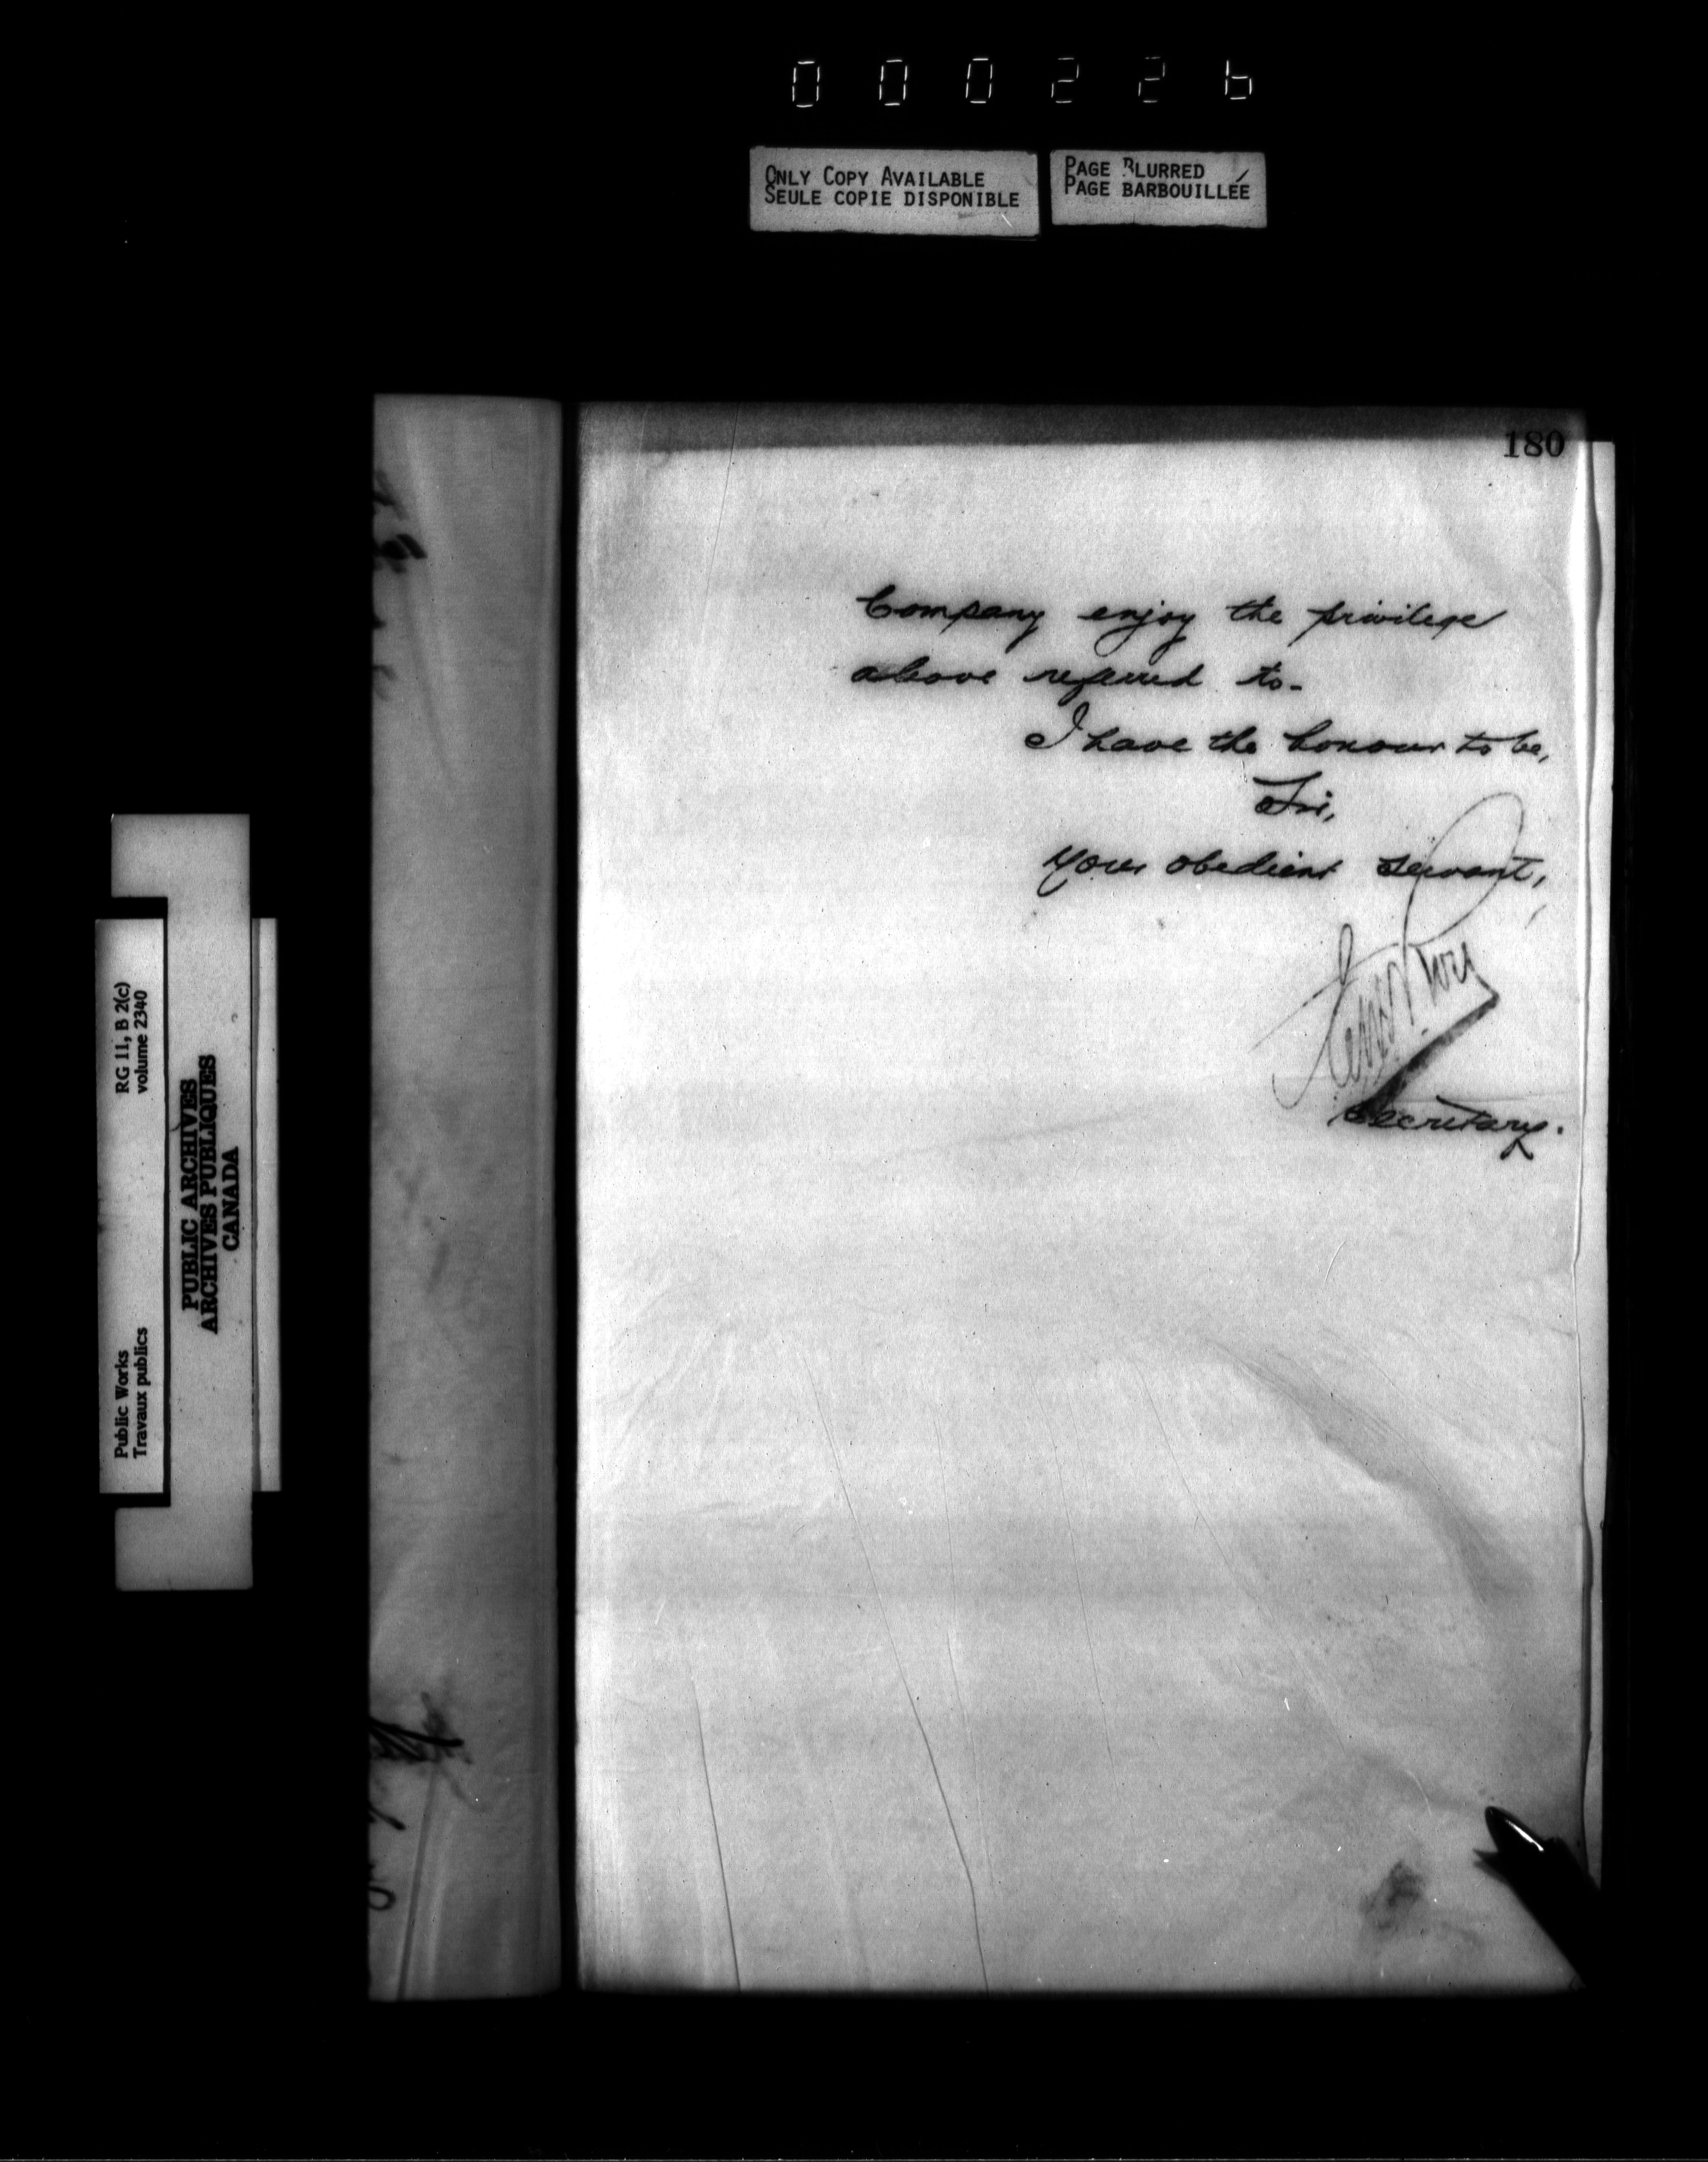 000226
ONLY COPY AVAILABLE
SEULE COPIE DISPONIBLE
PAGE BLURRED
PAGE BARBOUILLÉE
180
Company enjoy the privilege
above referred to.
I have the honour to be,
Sir,
Your obedient servant,
Secretary.
RG 11, B 2(c)
volume 2340
Public Works
Travaux publics
PUBLIC ARCHIVES
ARCHIVES PUBLIQUES
CANADA